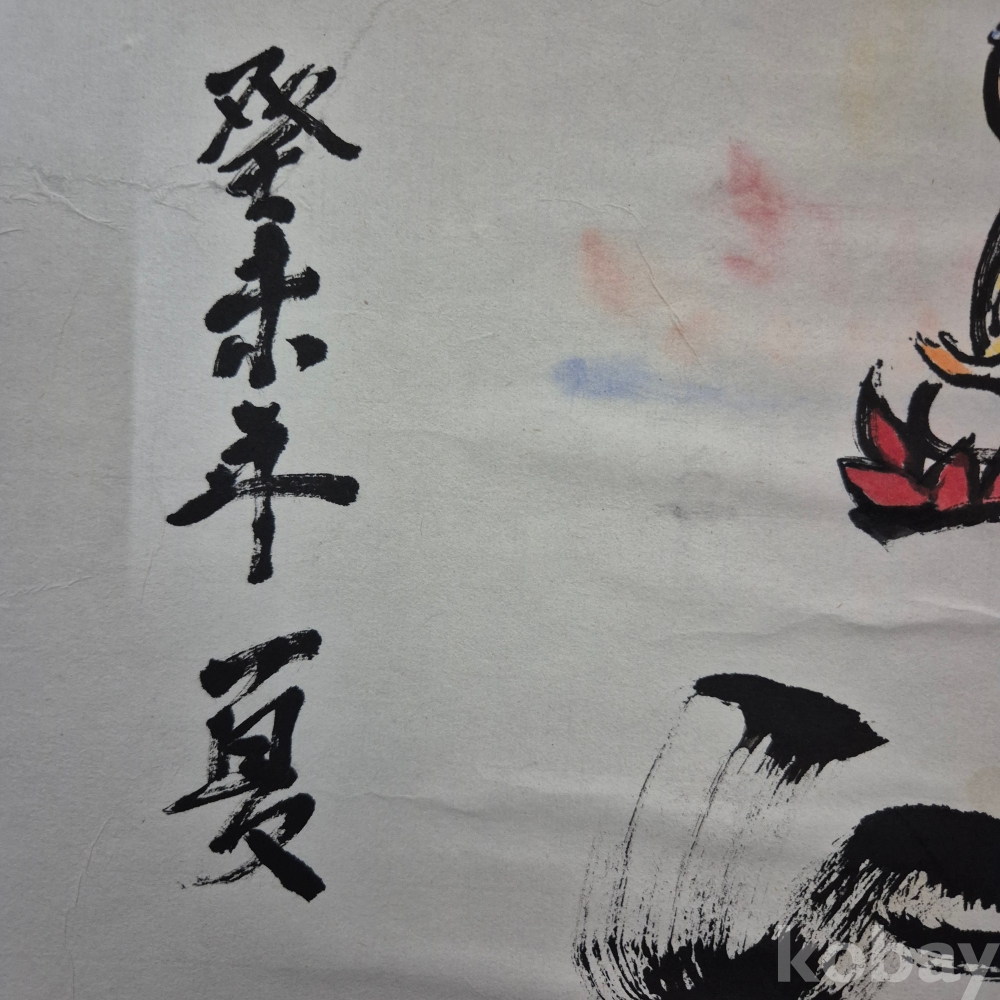 癸未年夏
kobay